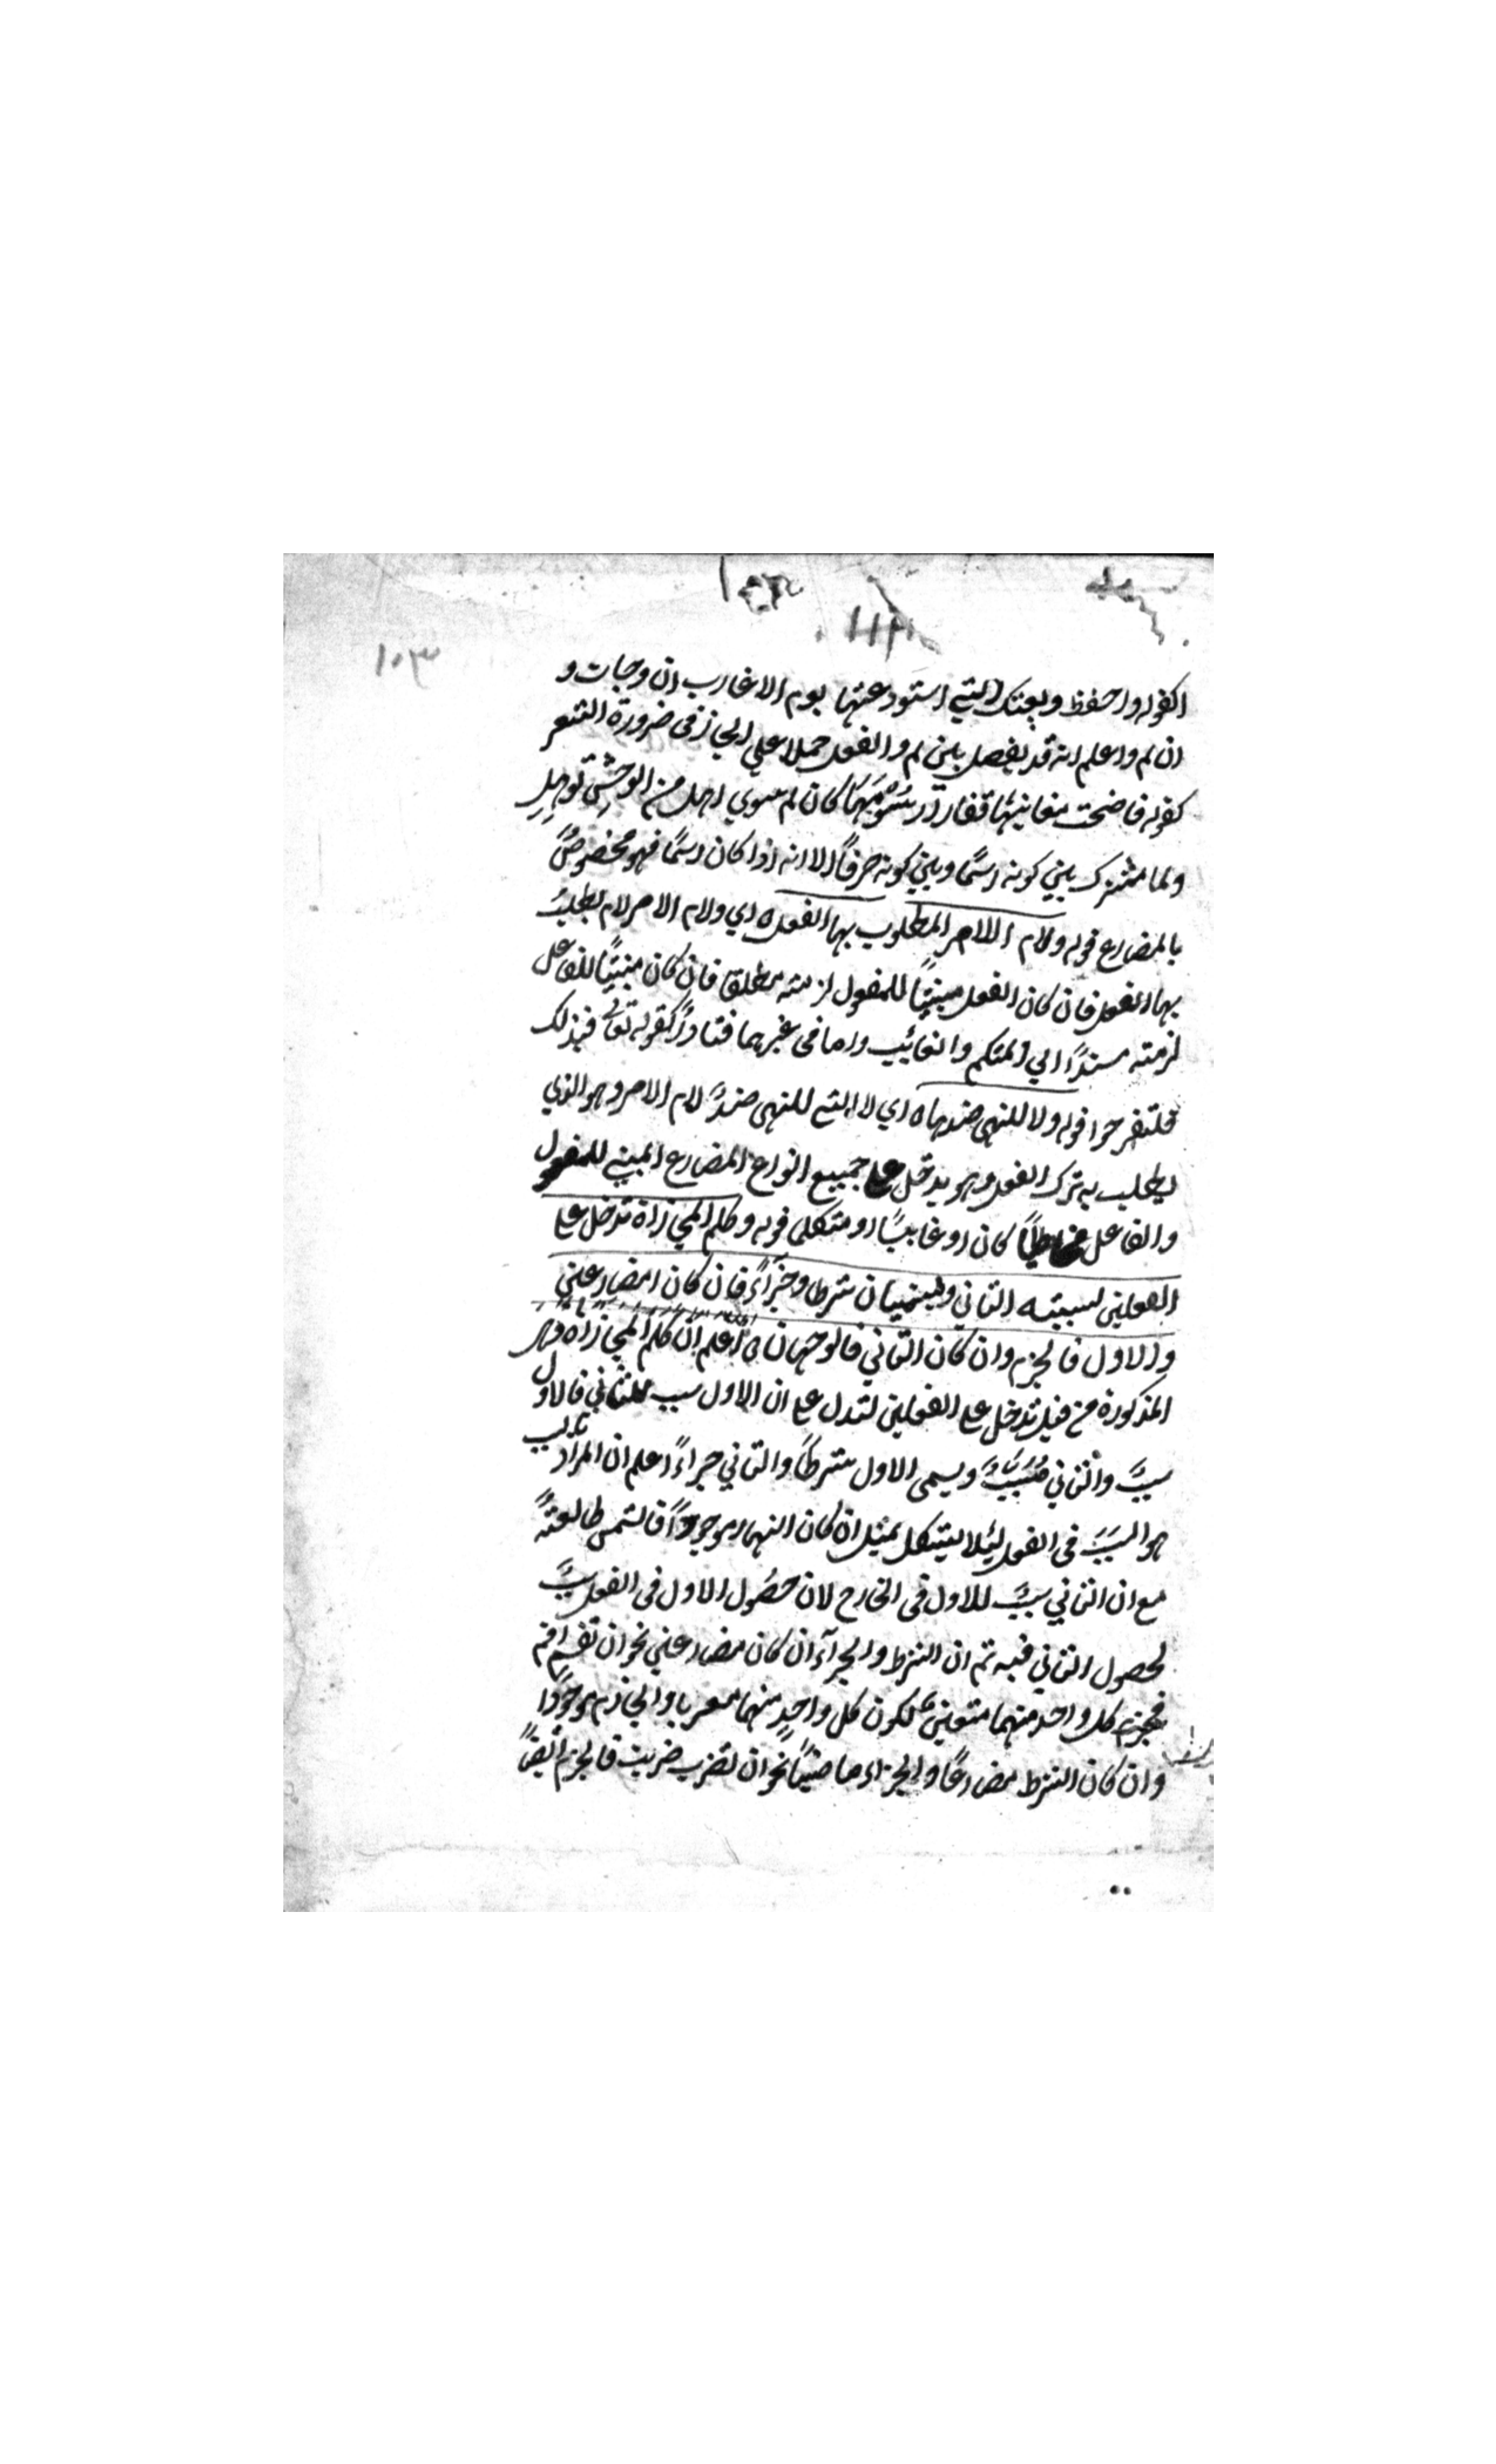 ١٠٣
كقوله واحفظ وديعتك التي استودعتها يوم الاعارب ان وجات و
ان لم واعلم انه قد يفصل بين لم والفعل حملا علي الجازم في ضرورة الشعر
كقوله فاضحت مغانيها قفارا رسومها كان لم سوي اهل من الوحش توهل
ولما مشترك بين كونه اسمًا وبين كونه حرفًا الا انه اذا كان اسمًا فهو مخصوصٌ
بالمضارع قوله ولام الامر المطلوب بها الفعل ه اي ولام الامر لام يطلب
بها الفعل فان كان الفعل مبنيًا للمفعول لزمته مطلقا فان كان مبنيًا للفاعل
لزمته مسندًا الي المتكم والغائب واما في غيرهما فنادرًا كقوله تعالى فبذلك
فلتفرحوا قوله ولا للنهي ضدها ه اي لا التي للنهي ضدّ لام الامر وهو الذي
يطلب به ترك الفعل وهو يدخل علي جميع انواع المضارع المبني للمفعول
والفاعل مخاطبًا كان او غايبًا او متكلما قوله وكلم المجازاة تدخل علي
الفعلين لسببية الثاني ويسميان شرطا وجزاءً فان كان امضارعين
والاول فالجزم وان كان الثاني فالوجهان اعلم ان كلم المجازاة وهي
المذكورة من قبل تدخل علي الفعلين لتدل علي ان الاول سبب للثاني فالاول
سببٌ والثاني مُسَبَّبٌ ويسمى الاول شرطًا والثاني جزاءً اعلم ان المراد بالسبب
هو السبب في الفعل لئلا يشكل بمثل ان كان النهار موجودًا فالشمس طالعةٌ
مع ان الثاني سببٌ للاول في الخارج لان حصول الاول في الفعل سببٌ
لحصول الثاني فيه ثم ان الشرط والجزآء ان كان مضارعين نحو ان تقم اقم
فجزم كل واحد منهما متعين لكون كل واحدٍ منهما معربا والجازم موجودًا
وان كان الشرط مضارعًا والجزاء ماضيًا نحو ان تضرب ضربت فالجزم ايضًا